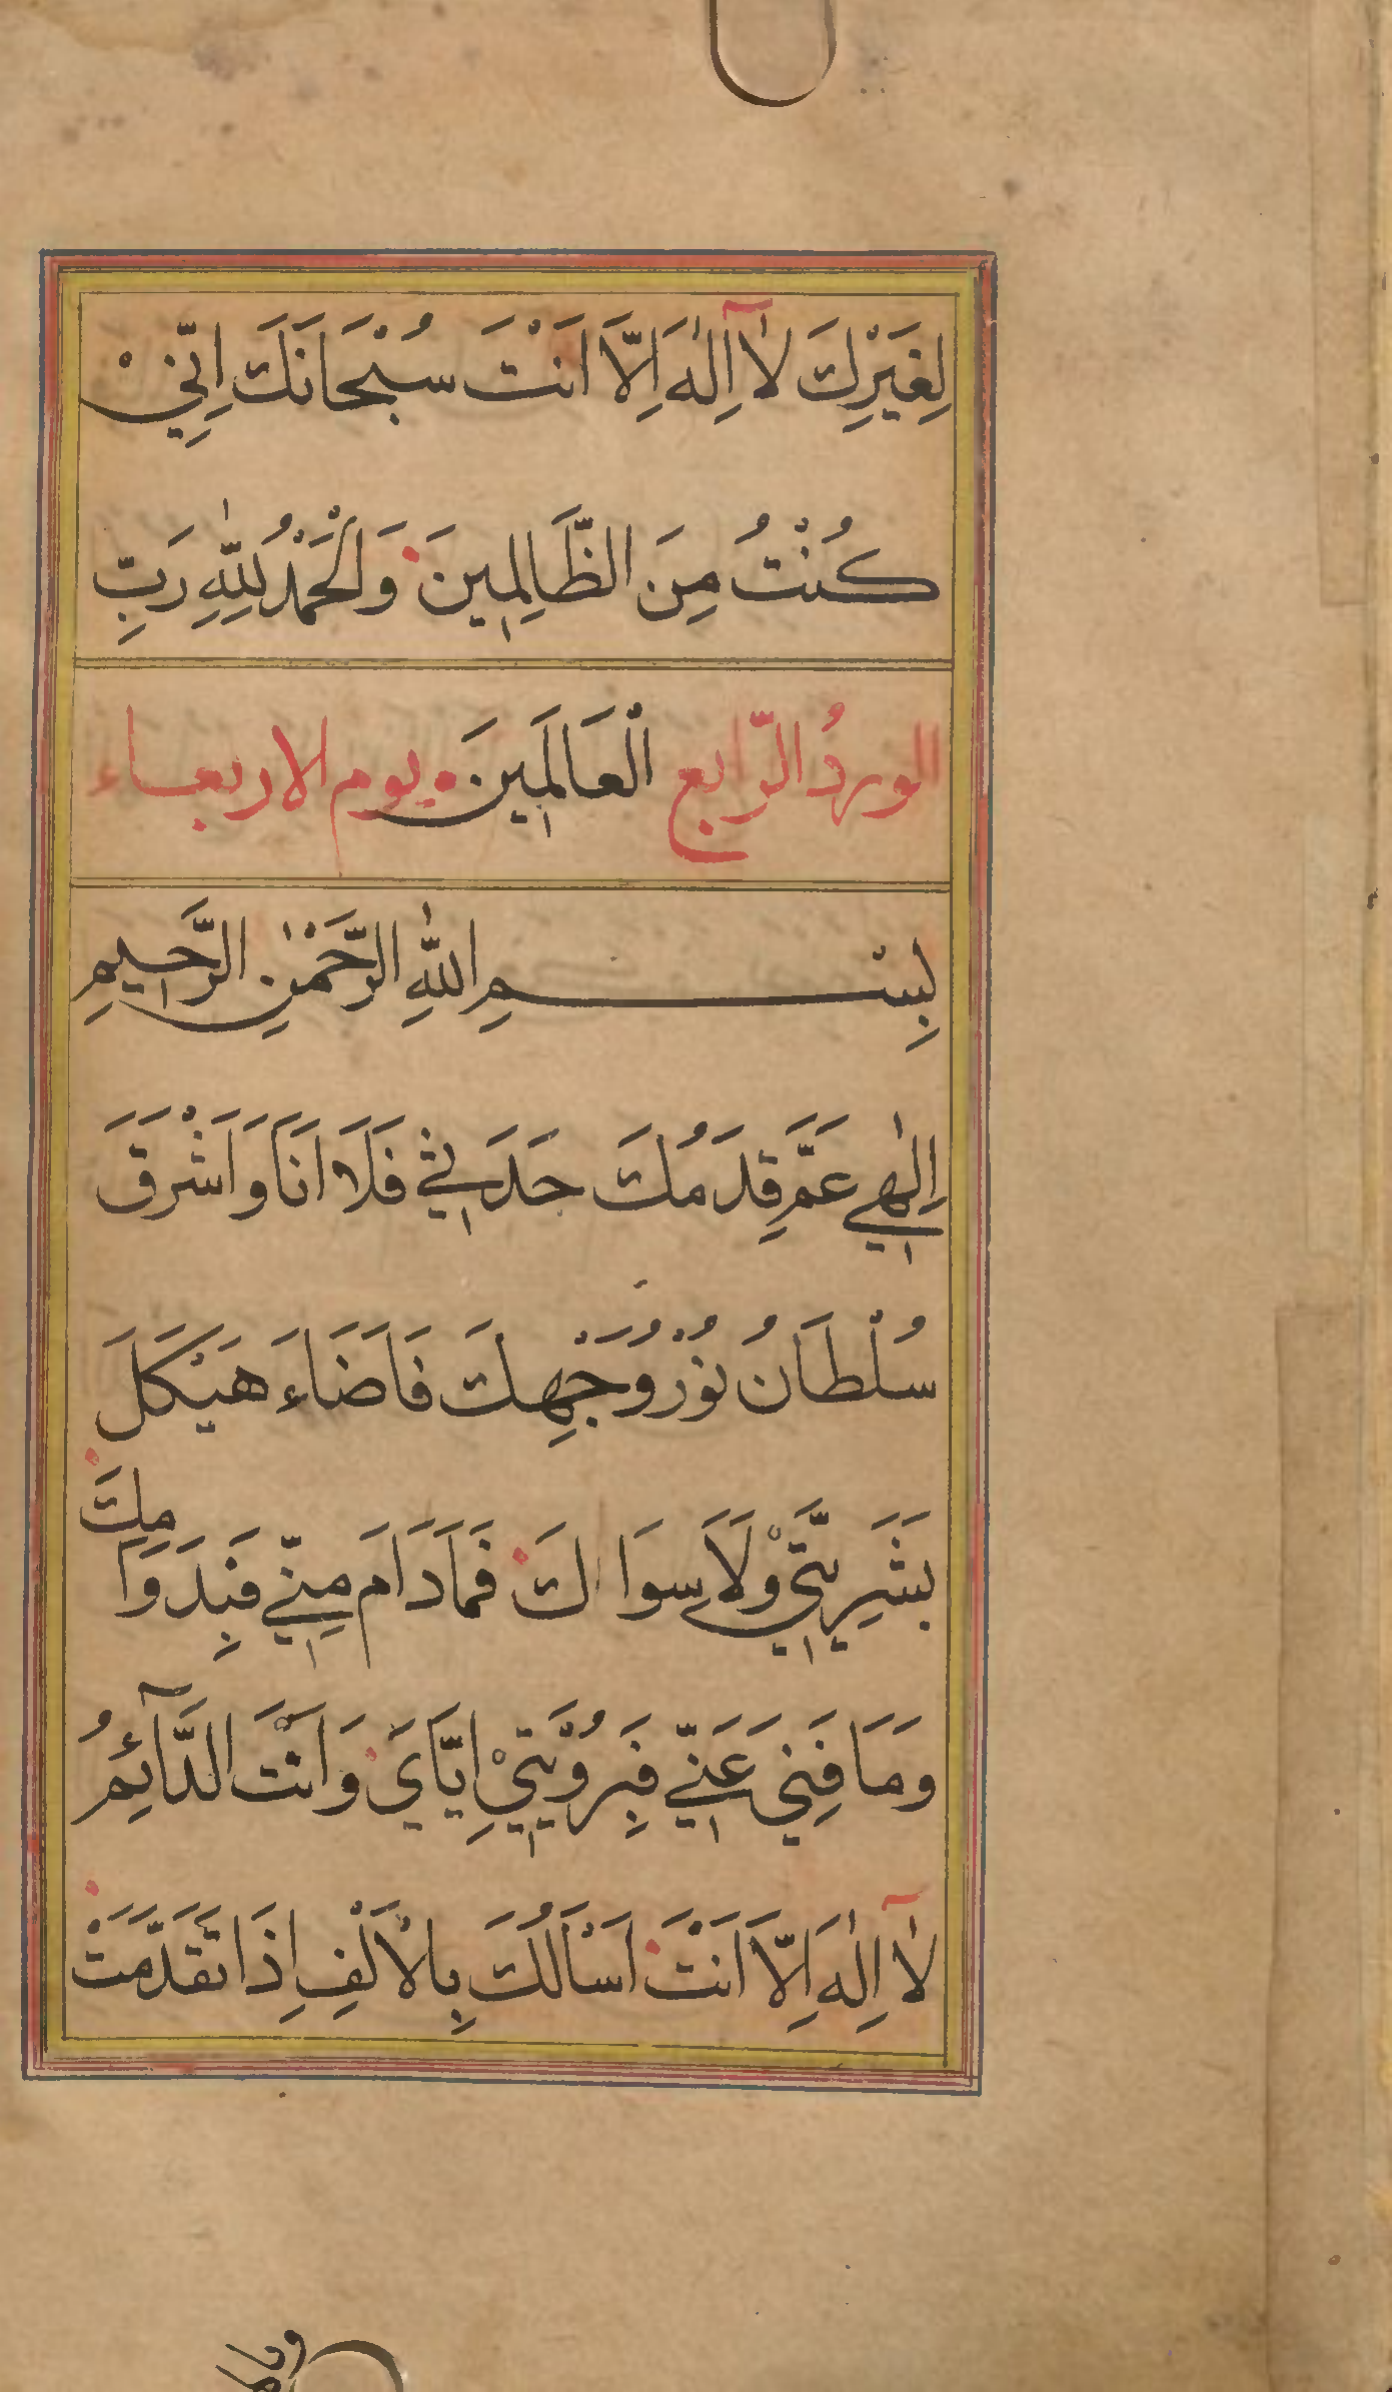 لِغَيْرِكَ لَآ اِلٰهَ اِلَّا اَنْتَ سُبْحَانَكَ اِنِّيْ
كُنْتُ مِنَ الظَّالِمِينَ وَالْحَمْدُ لِلّٰهِ رَبِّ
الوردُ الرّابع الْعَالَمِينَ يوم الاربعاء
بِسْمِ اللّٰهِ الرَّحْمٰنِ الرَّحِيمِ
اِلٰهِي عَمَّ قِدَمُكَ حَدَثِي فَلَا اَنَا وَاَشْرَقَ
سُلْطَانُ نُوْرُ وَجْهِكَ فَاَضَاءَ هَيْكَلَ
بَشَرِيَّتِيْ وَلَا سِوَاكَ فَمَا دَامَ مِنِّي فَبِدَوَامِكَ
وَمَا فَنِيَ عَنِّي فَبِرُؤْيَتِيْ اِيَّايَ وَاَنْتَ الدَّآئِمُ
لَآ اِلٰهَ اِلَّا اَنْتَ اَسْاَلُكَ بِالْاَلِفِ اِذَا تَقَدَّمَتْ